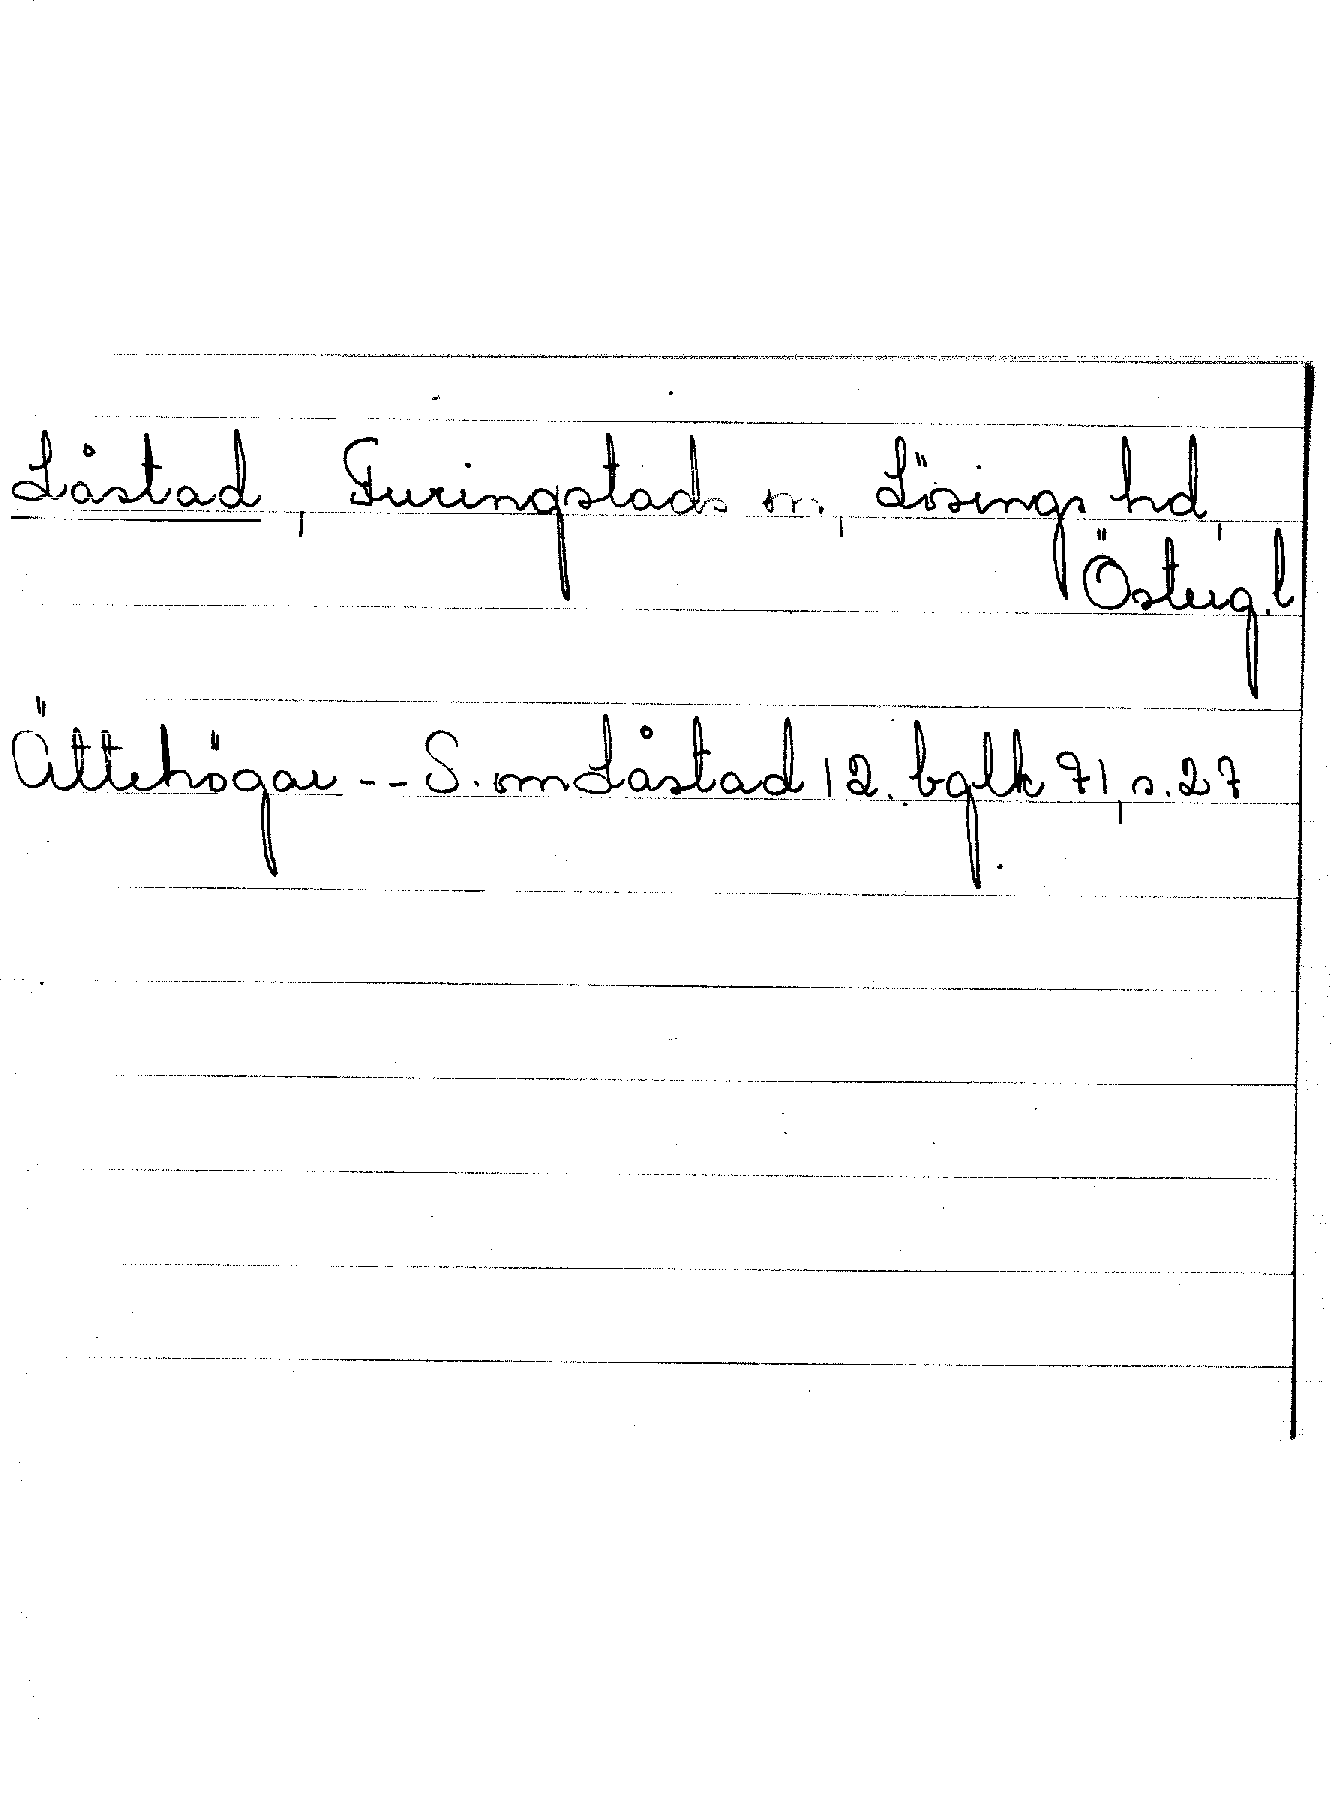 Låstad, Furingstads sn, Lösings hd,
Österg.l
Ättehögar -- S. om Låstad 12. bglk 71, s. 27